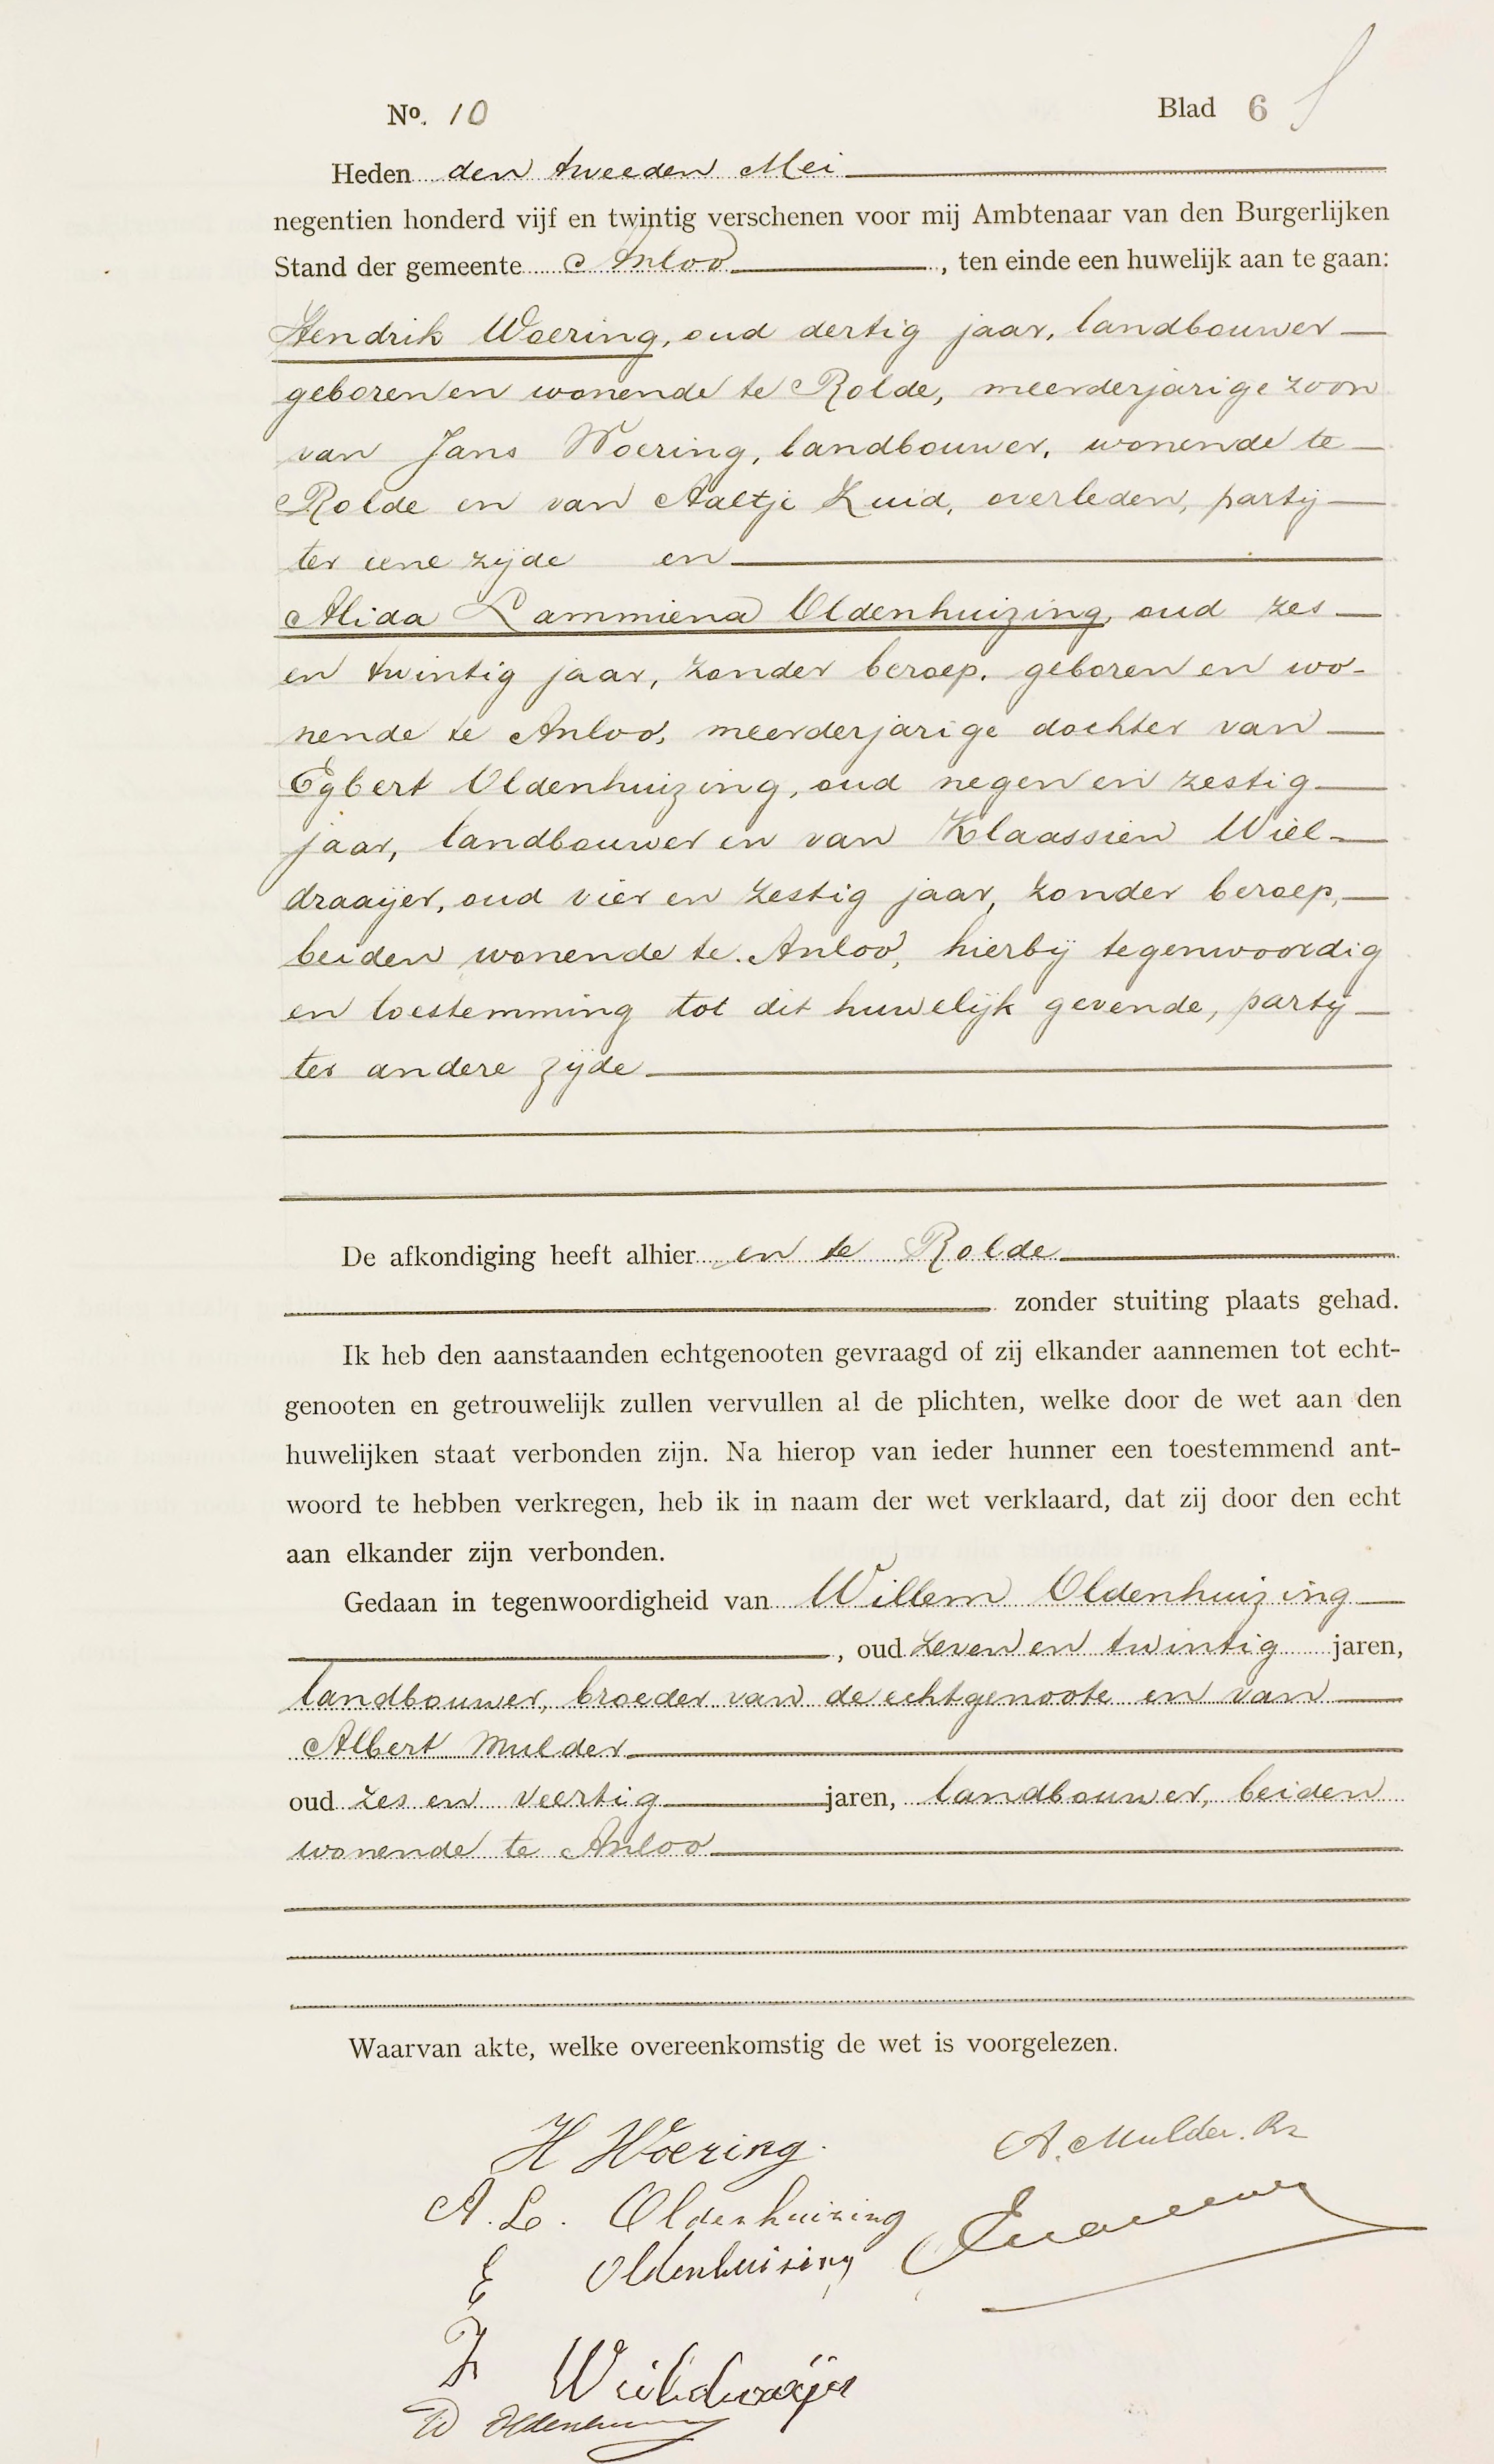 No. 10 Blad 6
Heden den tweeden Mei
negentien honderd vijf en twintig verschenen voor mij Ambtenaar van den Burgerlijken
Stand der gemeente Anloo, ten einde een huwelijk aan te gaan:
Hendrik Woering, oud dertig jaar, landbouwer
geboren en wonende te Rolde, meerderjarige zoon
van Jans Woering, landbouwer, wonende te
Rolde en van Aaltje Zuid, overleden, partij
ter eene zijde en
Alida Lammiena Oldenhuizing, oud zes
en twintig jaar, zonder beroep, geboren en wo-
nende te Anloo, meerderjarige dochter van
Egbert Oldenhuizing, oud negen en zestig
jaar, landbouwer en van Klaassien Wiel-
draaijer, oud vier en zestig jaar, zonder beroep,
beiden wonende te Anloo, hierbij tegenwoordig
en toestemming tot dit huwelijk gevende, partij
ter andere zijde
De afkondiging heeft alhier en te Rolde
zonder stuiting plaats gehad.
Ik heb den aanstaanden echtgenooten gevraagd of zij elkander aannemen tot echt-
genooten en getrouwelijk zullen vervullen al de plichten, welke door de wet aan den
huwelijken staat verbonden zijn. Na hierop van ieder hunner een toestemmend ant-
woord te hebben verkregen, heb ik in naam der wet verklaard, dat zij door den echt
aan elkander zijn verbonden.
Gedaan in tegenwoordigheid van Willem Oldenhuizing
, oud zeven en twintig jaren,
landbouwer, broeder van de echtgenoote en van
Albert Mulder
oud zes en veertig jaren, landbouwer, beiden
wonende te Anloo
Waarvan akte, welke overeenkomstig de wet is voorgelezen.
H Woering. A. Mulder. Rz
A. L. Oldenhuizing
E Oldenhuizing
K Wieldraaijer
W Oldenhuizing